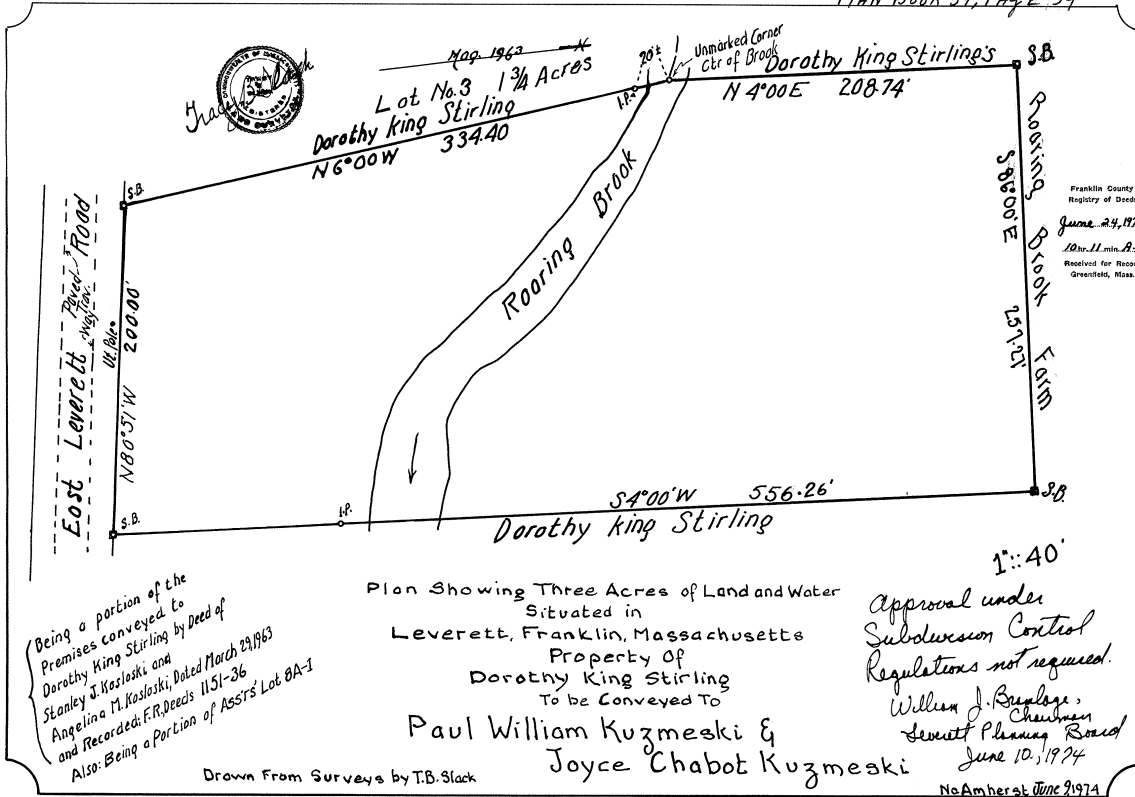 PLAN BOOK 39, PAGE 39
Mag. 1963 N
Lot No.3 1 3/4 Acres
Dorothy King Stirling
N6°00'W 334.40
20'±
Unmarked Corner
Ctr of Brook
I.P.
Dorothy King Stirling's
N 4°00'E 208.74'
S.B.
Roaring Brook Farm
S86°00'E 257.27'
Franklin County
Registry of Deeds
June 24, 197
10 hr. 11 min. A.
Received for Reco
Greenfield, Mass.
S.B.
East Leverett Road
Paved Trav. Way
Ut. Pole
N80°51'W 200.00'
Roaring Brook
S.B.
I.P.
S4°00'W 556.26'
S.B.
Dorothy King Stirling
1"::40'
Being a portion of the
Premises conveyed to
Dorothy King Stirling by Deed of
Stanley J. Kosloski and
Angelina M. Kosloski, Dated March 29, 1963
and Recorded: F.R. Deeds 1151-36
Also: Being a Portion of Ass'rs' Lot 8A-1
Plan Showing Three Acres of Land and Water
Situated in
Leverett, Franklin, Massachusetts
Property Of
Dorothy King Stirling
To be Conveyed To
Paul William Kuzmeski &
Joyce Chabot Kuzmeski
Approval under
Subdivision Control
Regulations not required.
William J.
Chairman
Leverett Planning Board
June 10, 1974
Drawn From Surveys by T.B. Slack
No Amherst June 9, 1974